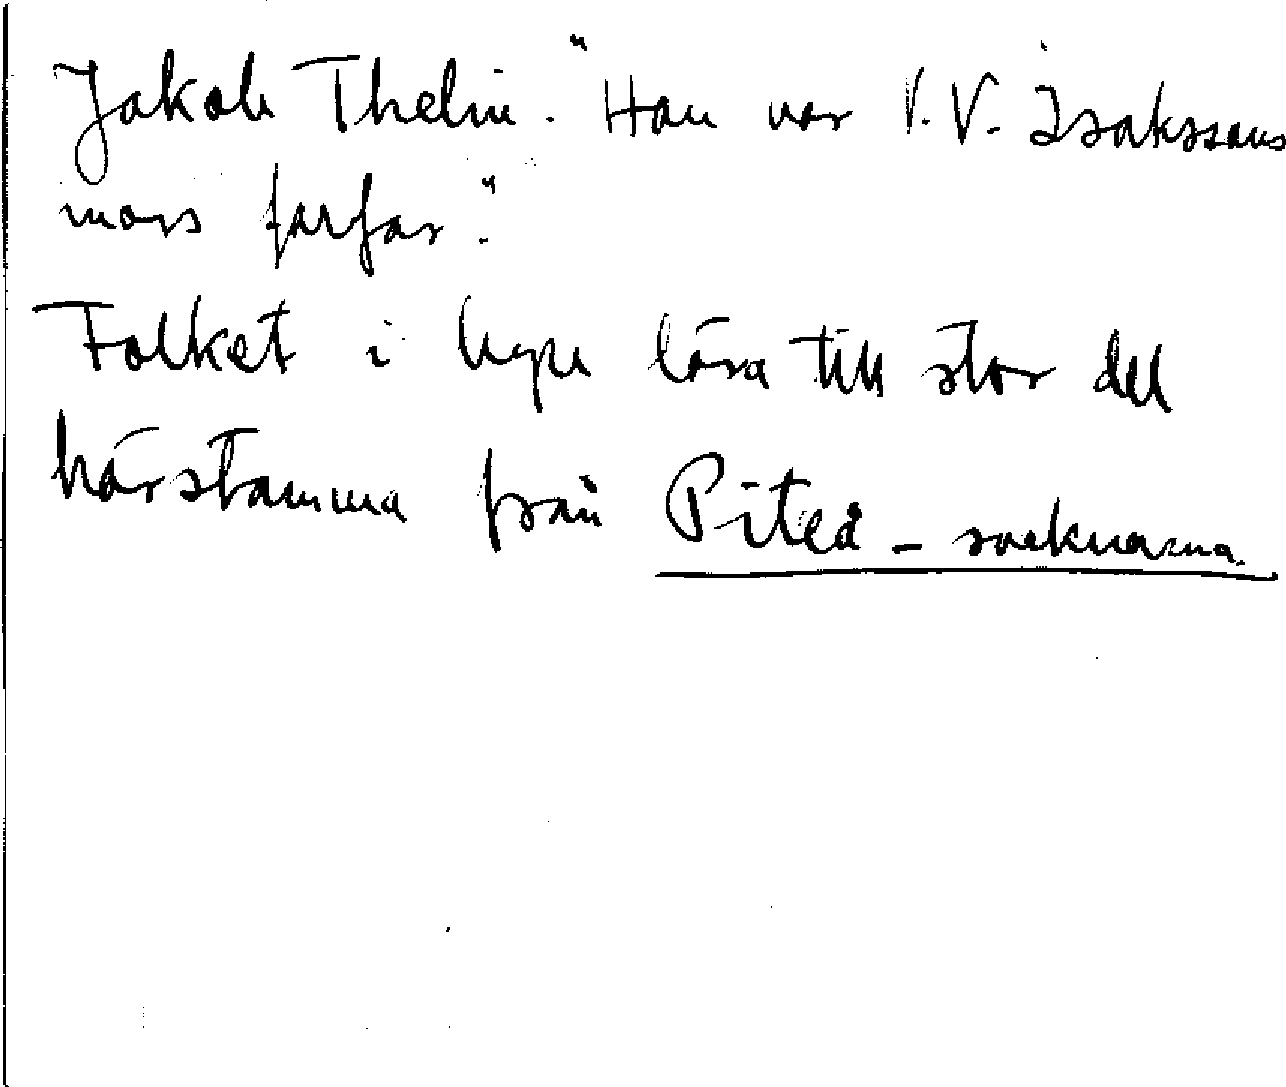 Jakob Thelin. "Han var I.V. Isakssons
mors farfar."
Folket i byn lära till stor del
härstamma från Piteå-socknarna.